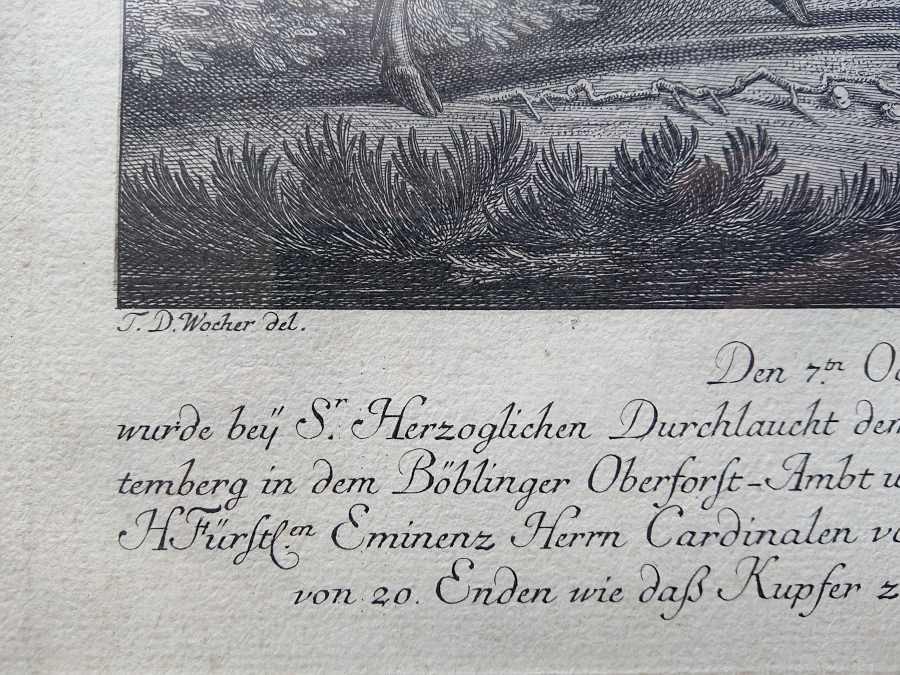 T. D. Wocher del.
Den 7.tn Oc
wurde beÿ S.r Herzoglichen Durchlaucht dem
temberg in dem Böblinger Oberforst-Ambt u
HFürstl.en Eminenz Herrn Cardinalen vo
von 20. Enden wie daß Kupfer z